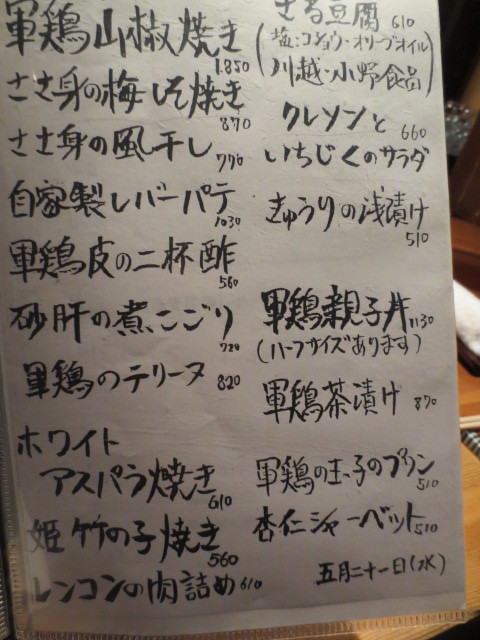 軍鶏山椒焼き 1.850
ささ身の梅しそ焼き 870
ささ身の風干し 770
自家製レバーパテ 1030
軍鶏皮の二杯酢 560
砂肝の煮こごり 720
軍鶏のテリーヌ 820
ホワイト
アスパラ焼き 610
姫竹の子焼き 560
レンコンの肉詰め 610
ざる豆腐 610
(塩・コショウ・オリーブオイル
川越・小野食品)
クレソンと 660
いちじくのサラダ
きゅうりの浅漬け 510
軍鶏親子丼 1130
(ハーフサイズあります)
軍鶏茶漬け 870
軍鶏の玉子のプリン 510
杏仁シャーベット 510
五月二十一日(水)